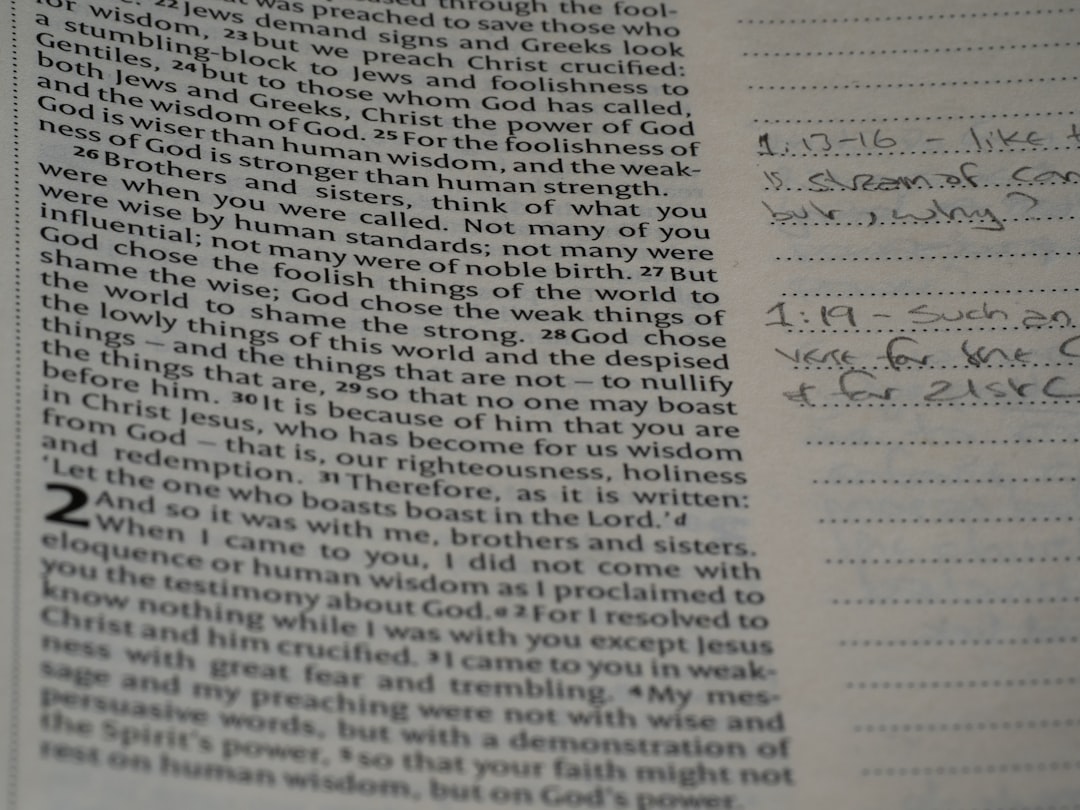 was preached to save those who
22 Jews demand signs and Greeks look
for wisdom, 23 but we preach Christ crucified:
a stumbling-block to Jews and foolishness to
Gentiles, 24 but to those whom God has called,
both Jews and Greeks, Christ the power of God
and the wisdom of God. 25 For the foolishness of
God is wiser than human wisdom, and the weak-
ness of God is stronger than human strength.
26 Brothers and sisters, think of what you
were when you were called. Not many of you
were wise by human standards; not many were
influential; not many were of noble birth. 27 But
God chose the foolish things of the world to
shame the wise; God chose the weak things of
the world to shame the strong. 28 God chose
the lowly things of this world and the despised
things – and the things that are not – to nullify
the things that are, 29 so that no one may boast
before him. 30 It is because of him that you are
in Christ Jesus, who has become for us wisdom
from God – that is, our righteousness, holiness
and redemption. 31 Therefore, as it is written:
‘Let the one who boasts boast in the Lord.’ d
2 And so it was with me, brothers and sisters.
When I came to you, I did not come with
eloquence or human wisdom as I proclaimed to
you the testimony about God. a 2 For I resolved to
know nothing while I was with you except Jesus
Christ and him crucified. 3 I came to you in weak-
ness with great fear and trembling. 4 My mes-
sage and my preaching were not with wise and
persuasive words, but with a demonstration of
the Spirit's power, 5 so that your faith might not
rest on human wisdom, but on God's power.
1:13-16 - like
is stream of
but, why?
1:19 - Such an
verse for
+ for 21st C